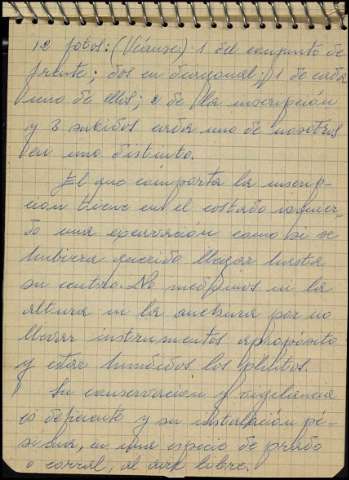 12 fotos: (Véanse) 1 del conjunto de
frente; dos en diagonal; 1 de cada
uno de ellos; 2 de la inscripción
y 3 subidos cada uno de nosotros
en uno distinto.
El que comporta la inscrip-
cion tiene en el costado izquier-
do una excavacion como si se
hubiera querido llegar hasta
su centro. No medimos ni la
altura ni la anchura por no
llevar instrumentos apropósito
y estar humedos los
Su conservación y vigilancia
es deficiente y su instalación pé-
sima, en una especie de prado
o corral, al aire libre.